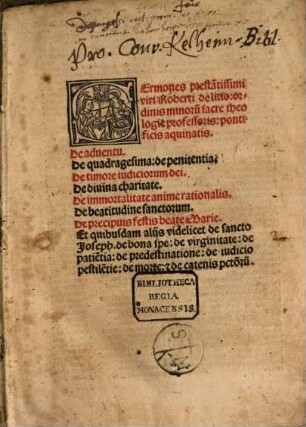 Pro. Conv. Kelheim. Bibl.
Sermones prestãtissimi
viri Roberti de litio: or-
dinis minorũ sacre theo
logie professoris: ponti-
ficis aquinatis.
De aduentu.
De quadragesima: de penitentia:
De timore iudiciorum dei.
De diuina charitate.
De immortalitate anime rationalis.
De beatitudine sanctorum.
De precipuis festis beate Marie.
Et quibusdam alijs videlicet de sancto
Joseph. de bona spe: de virginitate: de
patiẽtia: de predestinatione: de iudicio
pestilẽtie: de morte: ⁊ de catenis petõrũ.
BIBLIOTHECA
REGIA
MONACENSIS.